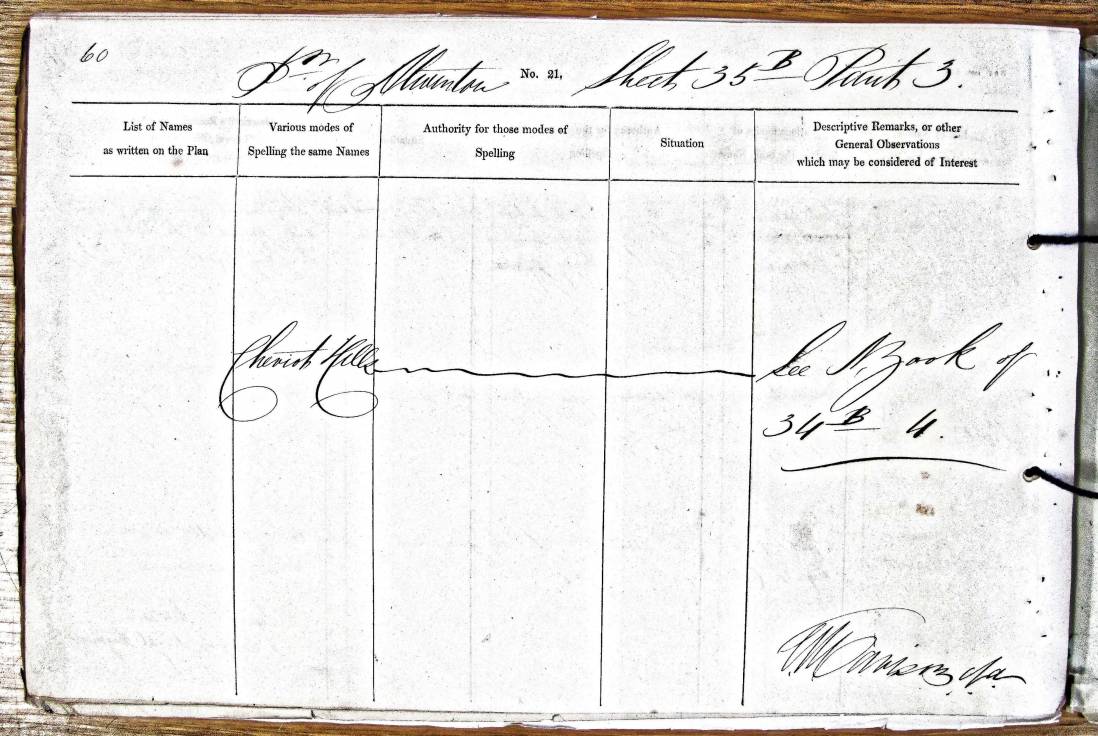 60
of Alwinton No. 21, Sheet 35 B Part 3.
List of Names
as written on the Plan
Various modes of
Spelling the same Names
Authority for those modes of
Spelling
Situation
Descriptive Remarks, or other
General Observations
which may be considered of Interest
Cheviot Hills
See N. Book of
34 B 4.
Davison c/a